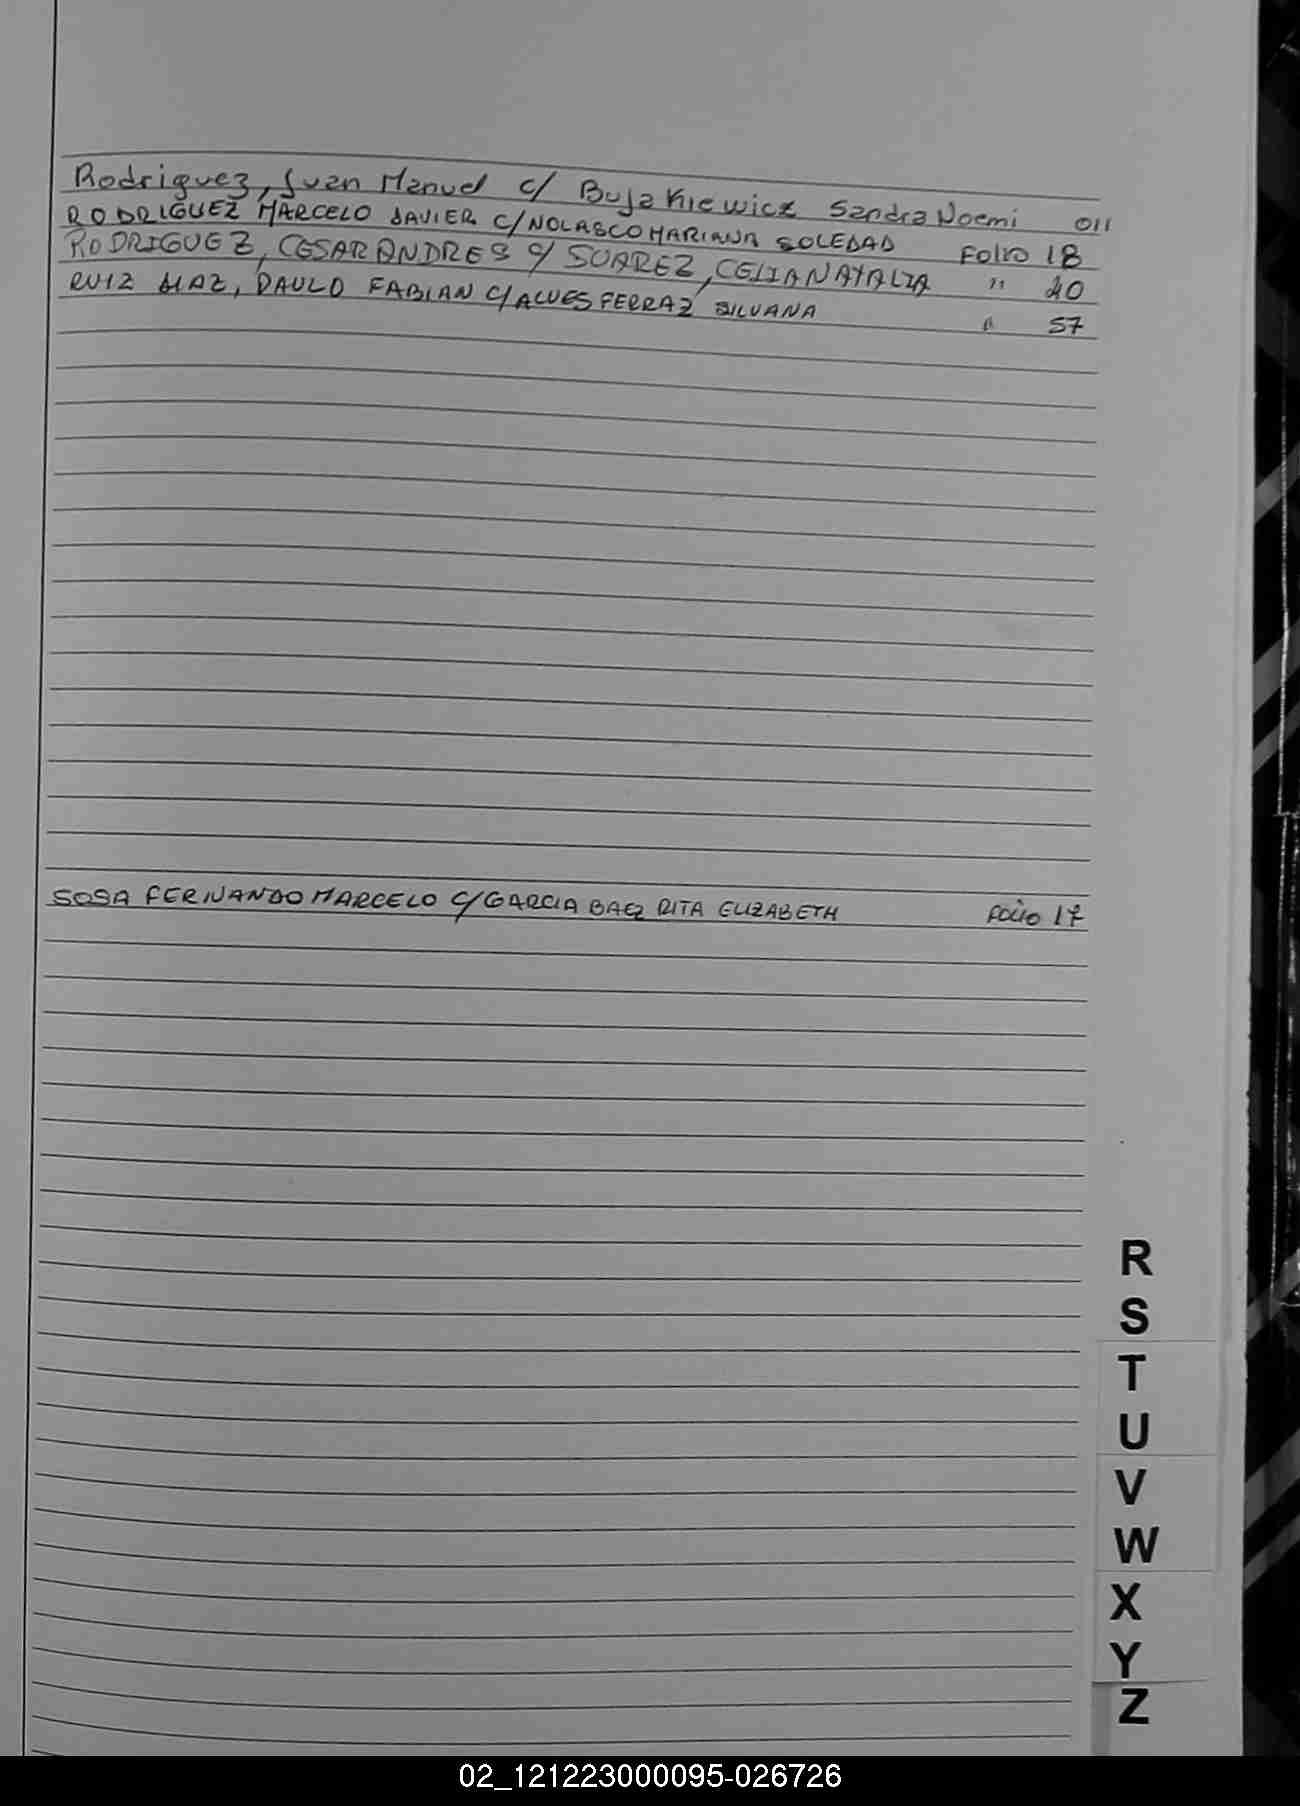 Rodriguez, Juan Manuel c/ Bujakiewicz Sandra Noemi 011
RODRIGUEZ MARCELO JAVIER C/NOLASCO MARIANA SOLEDAD Folio 18
RODRIGUEZ, CESAR ANDRES c/ SUAREZ, CELIA NATALIA " 40
RUIZ DIAZ, PAULO FABIAN C/ALVES FERRAZ SILVANA " 57
SOSA FERNANDO MARCELO C/GARCIA BAEZ RITA ELIZABETH FOLIO 17
R
S
T
U
V
W
X
Y
Z
02_121223000095-026726